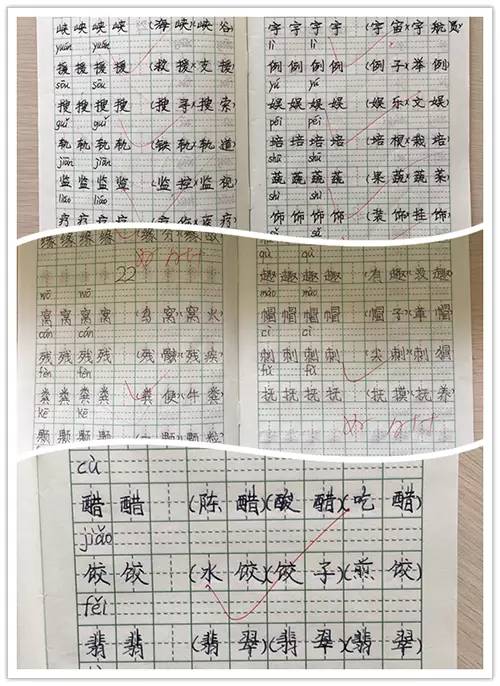 峡 峡 峡 峡 (海 峡)(峡 谷)
yuán yuán
援 援 援 援 (救 援)(支 援)
sōu sōu
搜 搜 搜 搜 (搜 寻)(搜 索)
guǐ guǐ
轨 轨 轨 轨 (铁 轨)(轨 道)
jiān jiān
监 监 监 监 (监 控)(监 视)
liáo liáo
疗 疗 疗 疗
宇 宇 宇 宇 (宇 宙)(宇 航 员)
lì lì
例 例 例 例 (例 子)(举 例)
yú yú
娱 娱 娱 娱 (娱 乐)(文 娱)
péi péi
培 培 培 培 (培 根)(栽 培)
shū shū
蔬 蔬 蔬 蔬 (果 蔬)(蔬 菜)
shì shì
饰 饰 饰 饰 (装 饰)(挂 饰)
sū sū
缘 缘 缘 缘
22
wō wō
窝 窝 窝 窝 (鸟 窝)
cán cán
残 残 残 残 (残 疾)
fèn fèn
粪 粪 粪 粪 (粪 便)(牛 粪)
kē kē
颗 颗 颗 颗
qù qù
趣 趣 趣 趣 (有 趣)(没 趣)
mào mào
帽 帽 帽 帽 (帽 子)(草 帽)
cì cì
刺 刺 刺 刺 (尖 刺)(刺 猬)
fǔ fǔ
抚 抚 抚 抚 (抚 摸)(抚 养)
cù
醋 醋 (陈 醋)(酸 醋)(吃 醋)
jiǎo
饺 饺 (水 饺)(饺 子)(煎 饺)
fěi
翡 翡 (翡 翠)(翡 翠)(翡 翠)